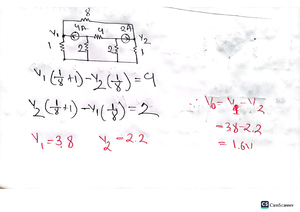 8
4A 4 2A
V₁ V₂
1 2 2 1
V₁(1/8+1)-V₂(1/8)=4
V₂(1/8+1)-V₁(1/8)=2
V₁=3.8 V₂=2.2
∵ V₀=V₁-V₂
=3.8-2.2
=1.6V
CS CamScanner